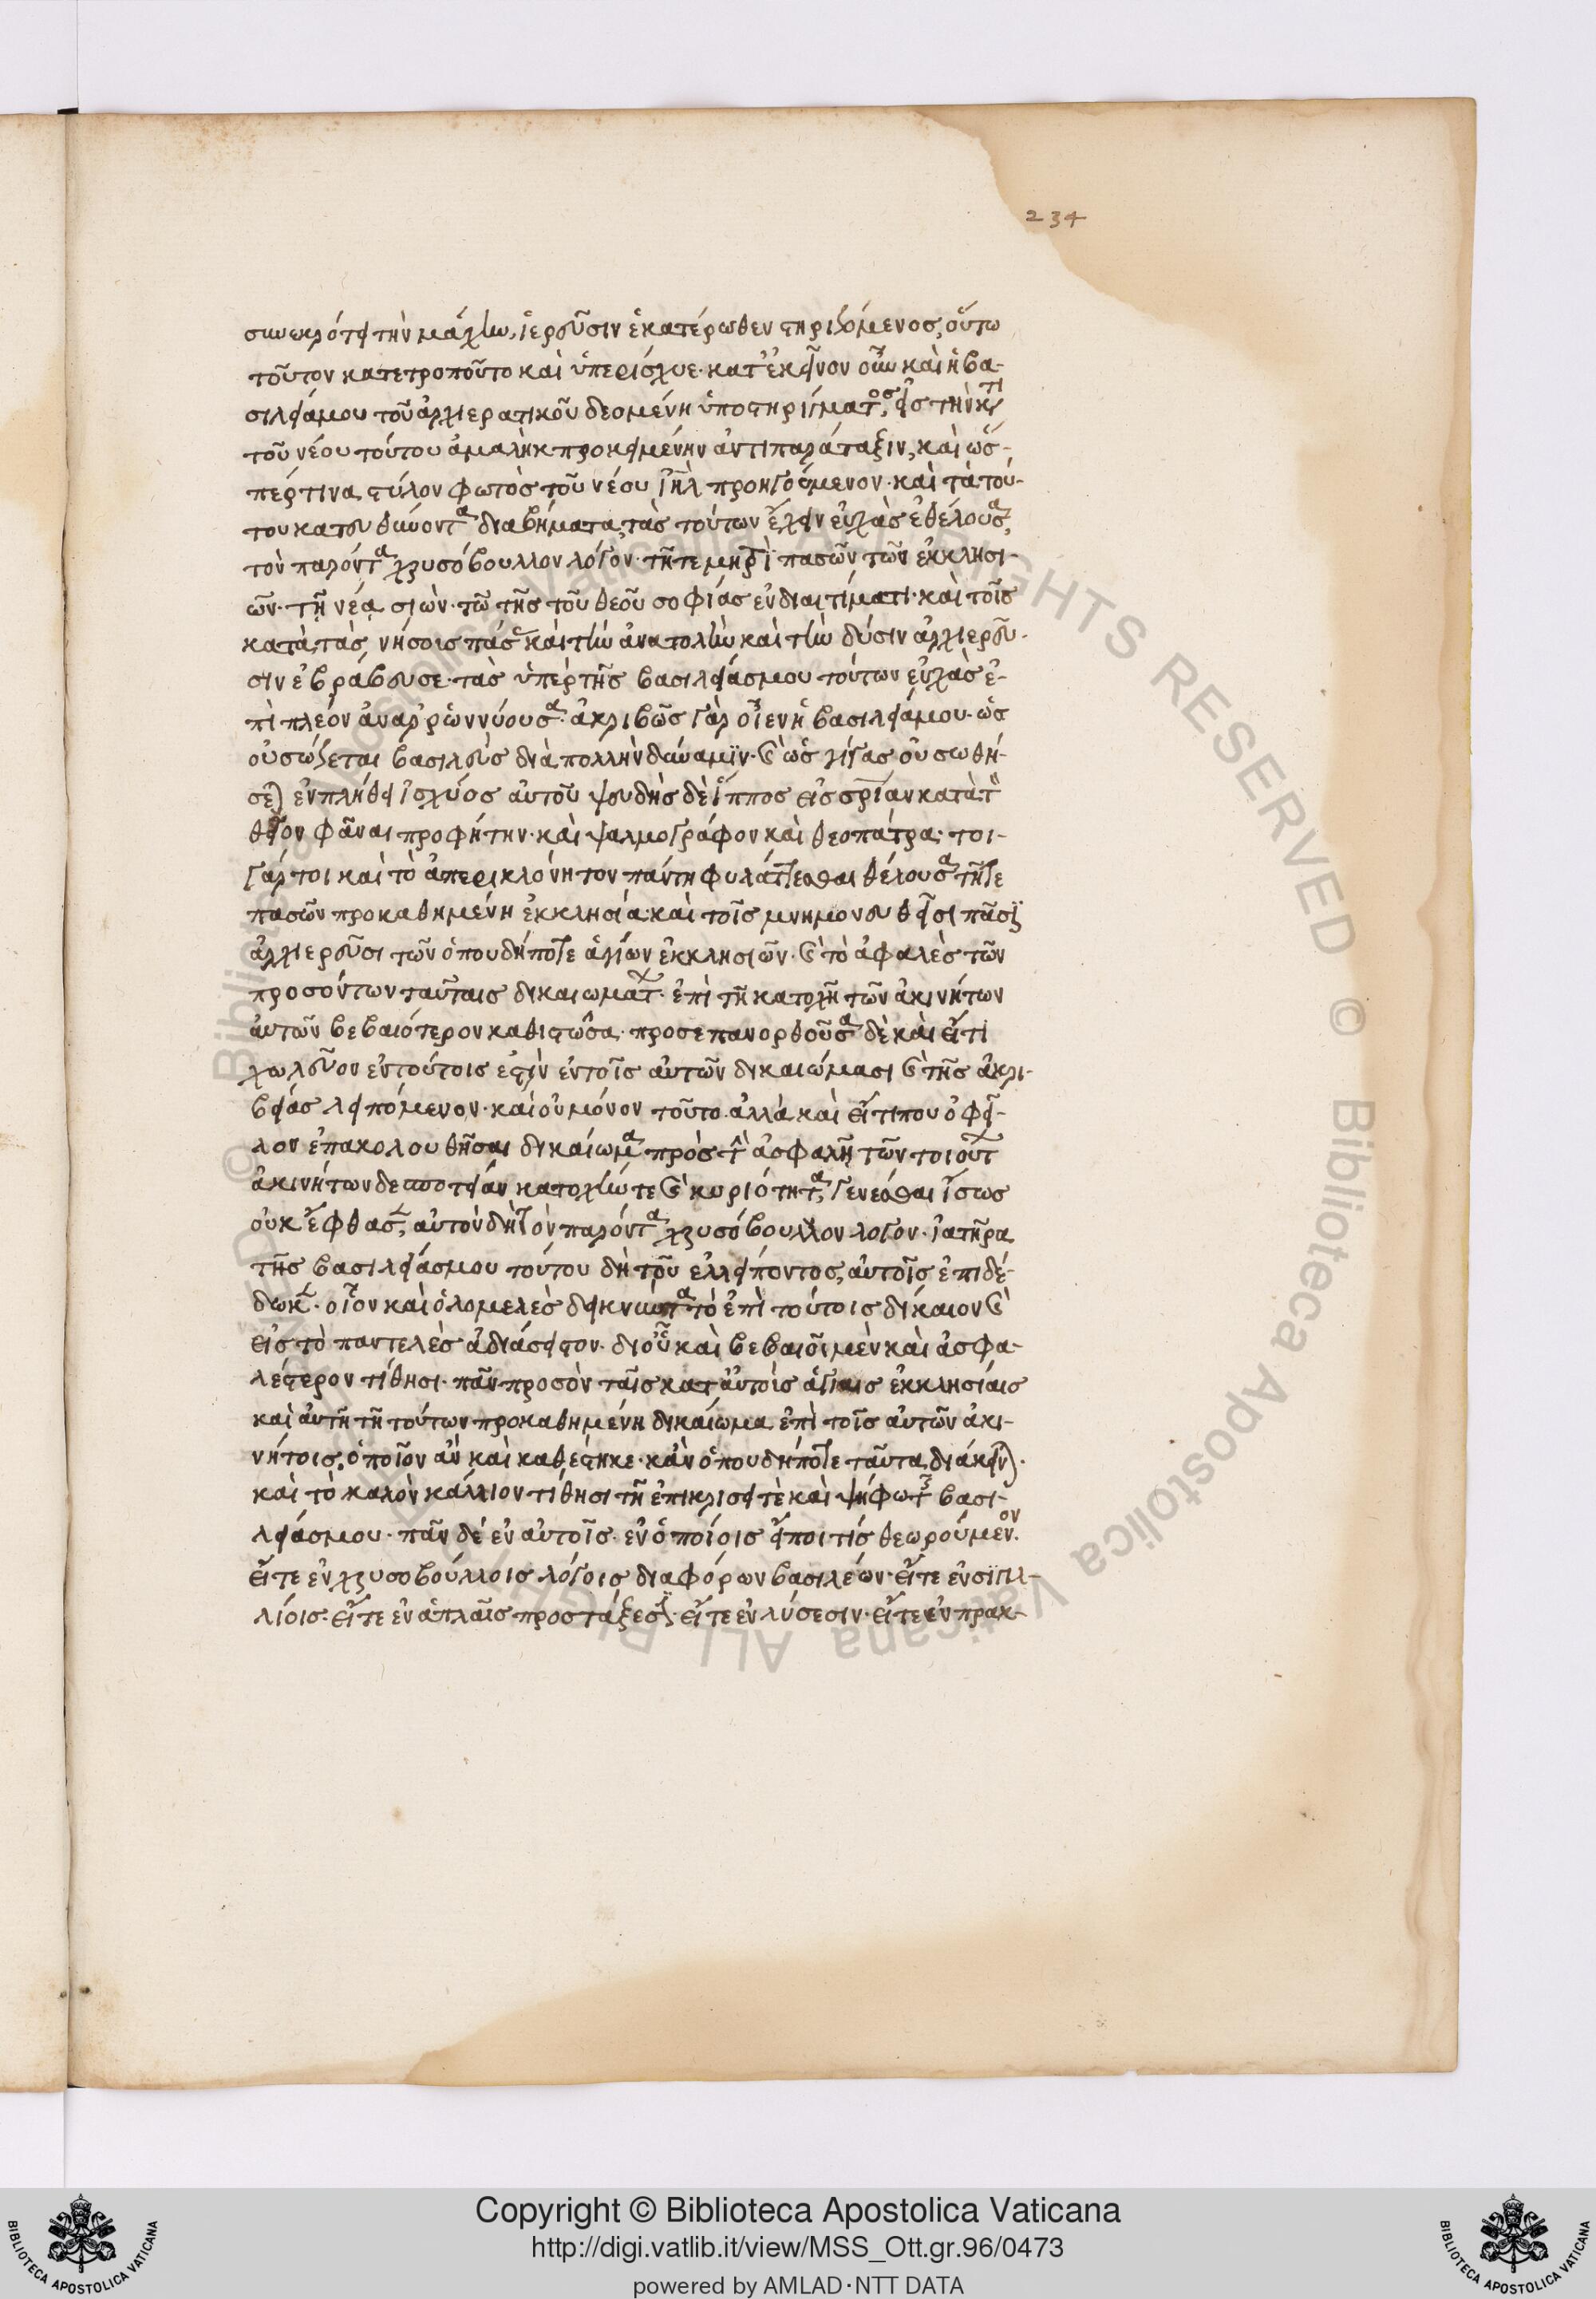 234
συνεκρότει τὴν μάχην, ἱερεῦσιν ἑκατέρωθεν στηριζόμενος, οὕτω
τοῦτον κατετροποῦτο καὶ ὑπερίσχυε· κατ' ἐκεῖνον οὖν καὶ ἡ βα-
σιλεία μου τοῦ ἀρχιερατικοῦ δεομένη ὑποστηρίγματος, εἰς τὴν κατὰ
τοῦ νέου τούτου ἀμαλὴκ προκειμένην ἀντιπαράταξιν, καὶ ὥσ-
περ τινα στύλον φωτὸς τοῦ νέου ἰηλ προηγούμενον· καὶ τὰ τού-
του κατευθύνοντα διαβήματα, τὰς τούτων ἔχειν εὐχὰς ἐθέλουσα,
τὸν παρόντα χρυσόβουλλον λόγον· τῆ τε μητρὶ πασῶν τῶν ἐκκλησι-
ῶν· τῇ νέᾳ σιὼν· τῶ τῆς τοῦ θεοῦ σοφίας ἐνδιαιτήματι· καὶ τοῖς
κατὰ τὰς νήσοις πάσαις καὶ τὴν ἀνατολὴν καὶ τὴν δύσιν ἀρχιερεῦ-
σιν ἐβράβευσε· τὰς ὑπὲρ τῆς βασιλείας μου τούτων εὐχὰς ἐ-
πὶ πλέον ἀναρρωννύουσα· ἀκριβῶς γὰρ οἶδεν ἡ βασιλεία μου· ὡς
οὐ σώζεται βασιλεὺς διὰ πολλὴν δύναμιν· καὶ ὡς γίγας οὐ σωθή-
σεται ἐν πλήθει ἰσχύος αὐτοῦ ψευδὴς δὲ ἵππος εἰς σρίαν κατὰ τὸν
θεῖον φᾶναι προφήτην· καὶ ψαλμογράφον καὶ θεοπάτρα· τοι-
γάρτοι καὶ τὸ ἀπερικλόνητον πάντη φυλάττεσθαι θέλουσα τῆ τε
πασῶν προκαθημένη ἐκκλησία· καὶ τοῖς μνημονευθεῖσι πᾶσιν
ἀρχιερεῦσι τῶν ὁπουδήποτε ἁγίων ἐκκλησιῶν· καὶ τὸ ἀσφαλὲς τῶν
προσόντων ταύταις δικαιωμάτων· ἐπὶ τῆ κατοχῆ τῶν ἀκινήτων
αὐτῶν βεβαιότερον καθιστῶσα· προσεπανορθοῦσα δὲ καὶ εἴ τι
χωλεῦον ἐν τούτοις ἐστὶν ἐν τοῖς αὐτῶν δικαιώμασι καὶ τῆς ἀκρι-
βείας λειπόμενον· καὶ οὐ μόνον τοῦτο· ἀλλὰ καὶ εἴ τι που ὀφεῖ-
λον ἐπακολουθῆσαι δικαίωμα πρὸς τὴν ἀσφαλῆ τῶν τοιούτων
ἀκινήτων δεσποτείαν κατοχήν τε καὶ κυριότητα, γενέσθαι ἴσως
οὐκ ἔφθασεν, αὐτὸν δὴ τὸν παρόντα χρυσόβουλλον λόγον· ἰατῆρα
τῆς βασιλείας μου τούτου δὴ τοῦ ἐλλείποντος, αὐτοῖς ἐπιδέ-
δωκεν· οἷον καὶ ὁλομελὲς δεικνύοντα τὸ ἐπὶ τούτοις δίκαιον καὶ
εἰς τὸ παντελὲς ἀδιάσειστον· δι' οὗ καὶ βεβαιοῖ μὲν καὶ ἀσφα-
λέστερον τίθησι· πᾶν προσὸν ταῖς κατ' αὐτοὺς ἁγίαις ἐκκλησίαις
καὶ αὐτῆ τῆ τούτων προκαθημένη δικαίωμα ἐπὶ τοῖς αὐτῶν ἀκι-
νήτοις, ὁποῖον ἂν καὶ καθέστηκε· κἂν ὁπουδήποτε ταῦτα διάκεινται·
καὶ τὸ καλὸν κάλλιον τίθησι τῆ ἐπικρίσει τὲ καὶ ψήφω τῆς βασι-
λείας μου· πᾶν δέ ἐν αὐτοῖς· ἐν ὁποίοις εἴποι τίς θεωρούμενον·
εἴτε ἐν χρυσοβούλλοις λόγοις διαφόρων βασιλέων· εἴτε ἐν σιγιλ-
λίοις· εἴτε ἐν ἁπλαῖς προστάξεσιν· εἴτε ἐν λύσεσιν· εἴτε ἐν πρακ-
© Biblioteca Apostolica Vaticana ALL RIGHTS RESERVED
Copyright © Biblioteca Apostolica Vaticana
http://digi.vatlib.it/view/MSS_Ott.gr.96/0473
powered by AMLAD·NTT DATA
BIBLIOTECA APOSTOLICA VATICANA
BIBLIOTECA APOSTOLICA VATICANA